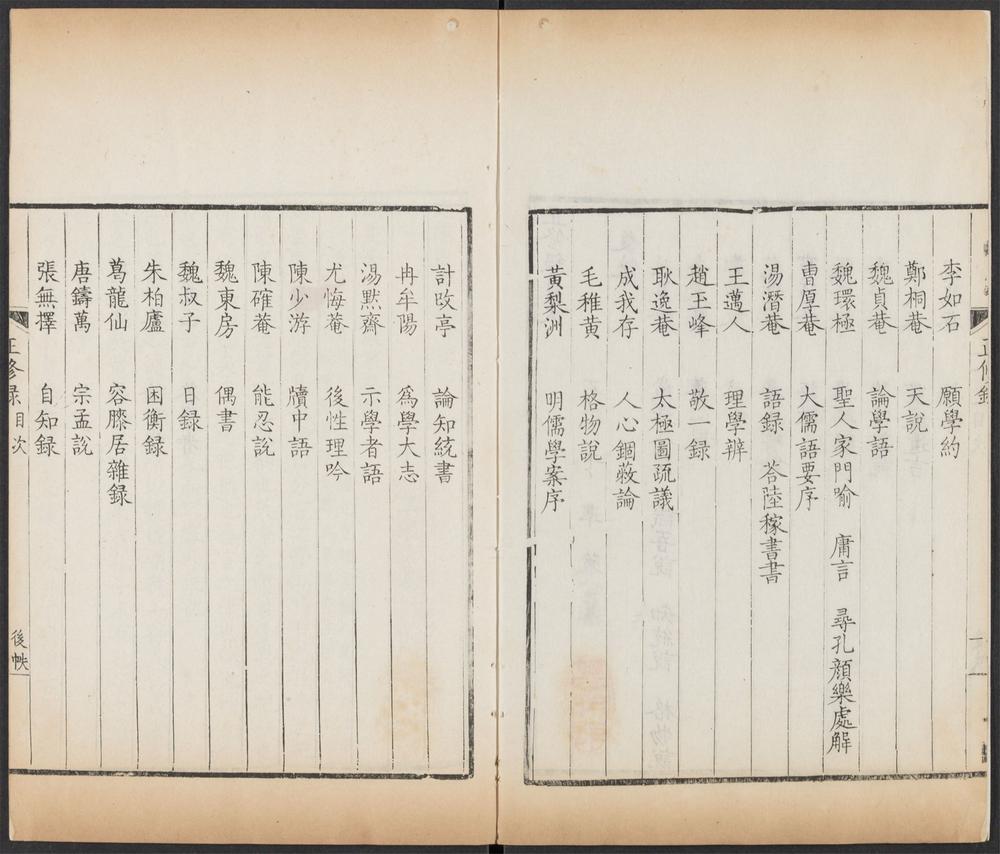 李如石 願學約
鄭桐菴 天說
魏貞菴 論學語
魏環極 聖人家門喻 庸言 尋孔顏樂處解
曹厚菴 大儒語要序
湯潛菴 語録 荅陸稼書書
王邁人 理學辨
趙玉峰 敬一録
耿逸菴 太極圖疏議
成我存 人心錮蔽論
毛稚黄 格物説
黄梨洲 明儒學案序
計改亭 論知統書
冉牟陽 為學大志
湯默齋 示學者語
尤悔菴 後性理吟
陳少游 牘中語
陳確菴 能忍説
魏東房 偶書
魏叔子 日録
朱柏廬 困衡録
葛龍仙 容膝居雜録
唐鑄萬 宗孟説
張無擇 自知録
正修録 目次 後帙